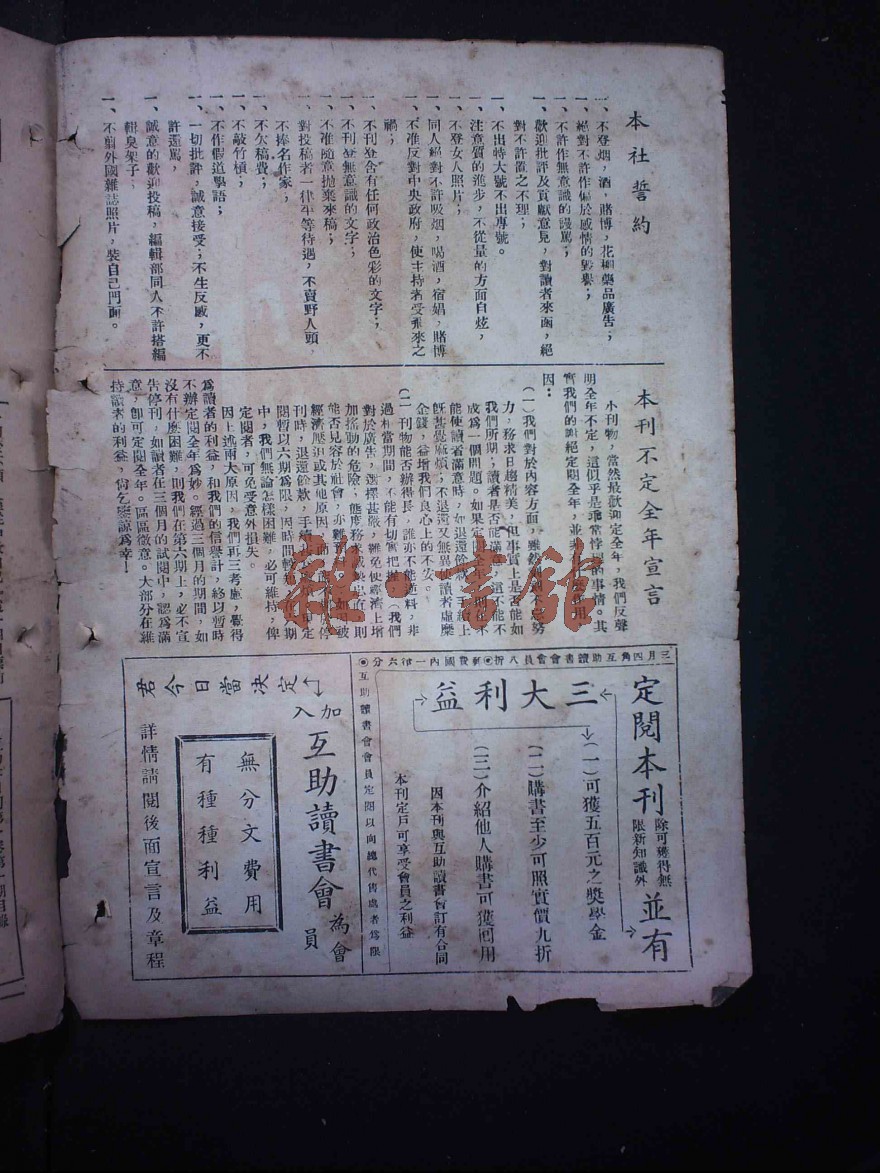 本社誓約
一、不登烟,酒,賭博,花柳藥品廣告;
一、絕對不許作偏於感情的毀譽;
一、不許作無意識的謾罵;
一、歡迎批評及貢獻意見,對讀者來函,絕
對不許置之不理;
一、不出特大號不出專號。
一、注意質的進步,不從量的方面自炫,
一、不登女人照片;
一、同人絕對不許吸烟,喝酒,宿娼,賭博
一、不准反對中央政府,使主持者受乘來之
禍;
一、不刊登含有任何政治色彩的文字;
一、不刊登無意識的文字;
一、不准隨意拋棄來稿;
一、對投稿者一律平等待遇,不賣野人頭,
不捧名作家;
一、不欠稿費;
一、不敲竹槓;
一、不作假道學語;
一、一切批評,誠意接受;不生反感,更不
許還罵,
一、誠意的歡迎投稿,編輯部同人不許搭編
輯臭架子;
一、不翦外國雜誌照片,裝自己門面。
本刊不定全年宣言
小刊物,當然最歡迎定全年,我們反聲
明全年不定,這似乎是乖常悖
的事情。其
實我們的謝絕定閱全年,並
因:
(一)我們對於內容方面,雖然
努
力,務求日趨精美,但事實上是否能如
我們所期;讀者是否能滿意,這不能不
成爲一個問題。如果定
能使讀者滿意時,如退還餘款,手續上
既甚覺麻煩;不退還又無異使讀者虛糜
金錢,益增我們良心上的不安。
(二)刊物能否辦得長,誰亦不能逆料,非
過相當期間,不能有切實把握,(我們
對於廣告,選擇甚嚴,難免使經濟上增
加搖動的危險,態度務求
則
能否見容於社會,亦難
如因被
經濟壓迫或其他原因,而
停
刊時,退還餘款,手續
定
閱暫以六期爲限,因時間較短,在
期
中,我們無論怎樣困難,必可維持,俾
定閱者,可免受意外損失。
因上述兩大原因,我們再三考慮,覺得
爲讀者的利益,和我們的信譽計,終以暫時
不辦定閱全年爲妙。經過三個月的期間,如
沒有什麼困難,則我們在第六期上,必不宣
告停刊,如讀者在三個月的試閱中,認爲滿
意,卽可定閱全年。區區微意。大部分在維
持讀者的利益,倘乞鑒諒爲幸!
三月四角互助讀書會會員八折◉郵費國內一律六分◉
定閱本刊
除可獲得無
限新知識外
並有
三大利益
(一)可獲五百元之獎學金
(二)購書至少可照實價九折
(三)介紹他人購書可獲囘用
因本刊與互助讀書會訂有合同
本刊定戶可享受會員之利益
互助讀書會會員定閱以向總代售處者爲限
君今日當決定
加入
互助讀書會
爲會員
無分文費用
有種種利益
詳情請閱後面宣言及章程
雜·書館